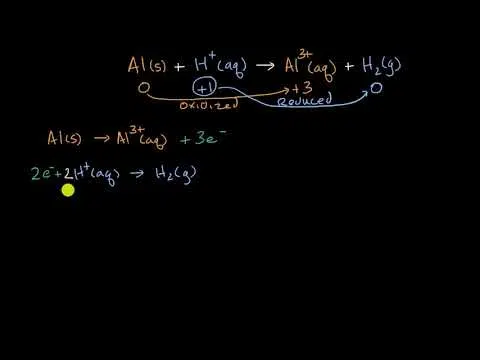 Al(s) + H⁺(aq) → Al³⁺(aq) + H₂(g)
0 +1 +3 0
oxidized Reduced
Al(s) → Al³⁺(aq) + 3e⁻
2e⁻ + 2H⁺(aq) → H₂(g)